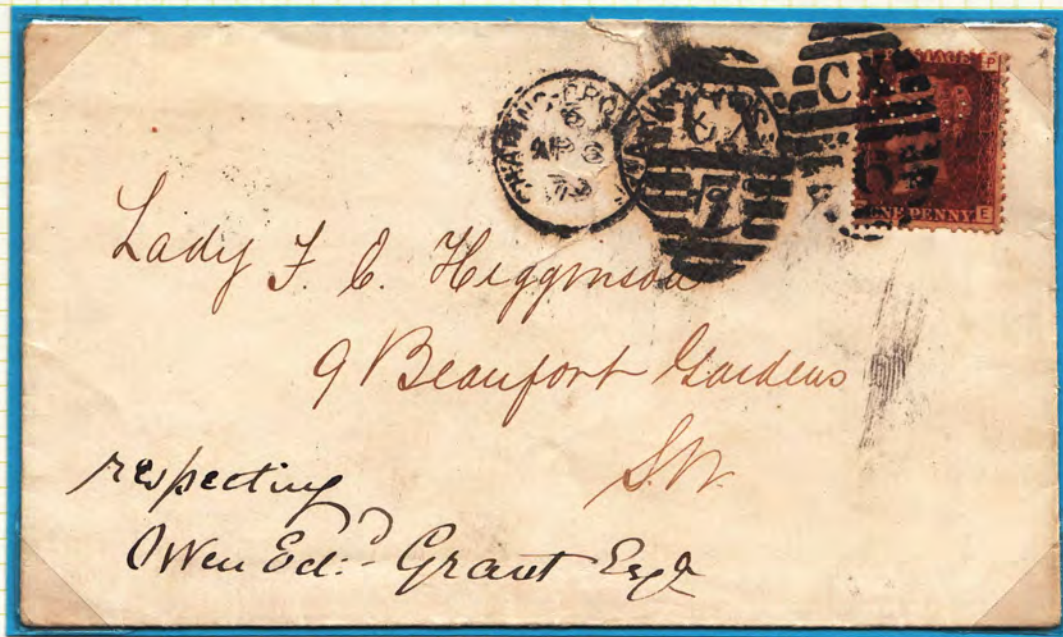 CHARING-CRO
8
AP 6
C
P
ONE PENNY E
Lady F. C. Higginson
9 Beaufort Gardens
S.W.
respecting
Owen Edd. Grant Esqr